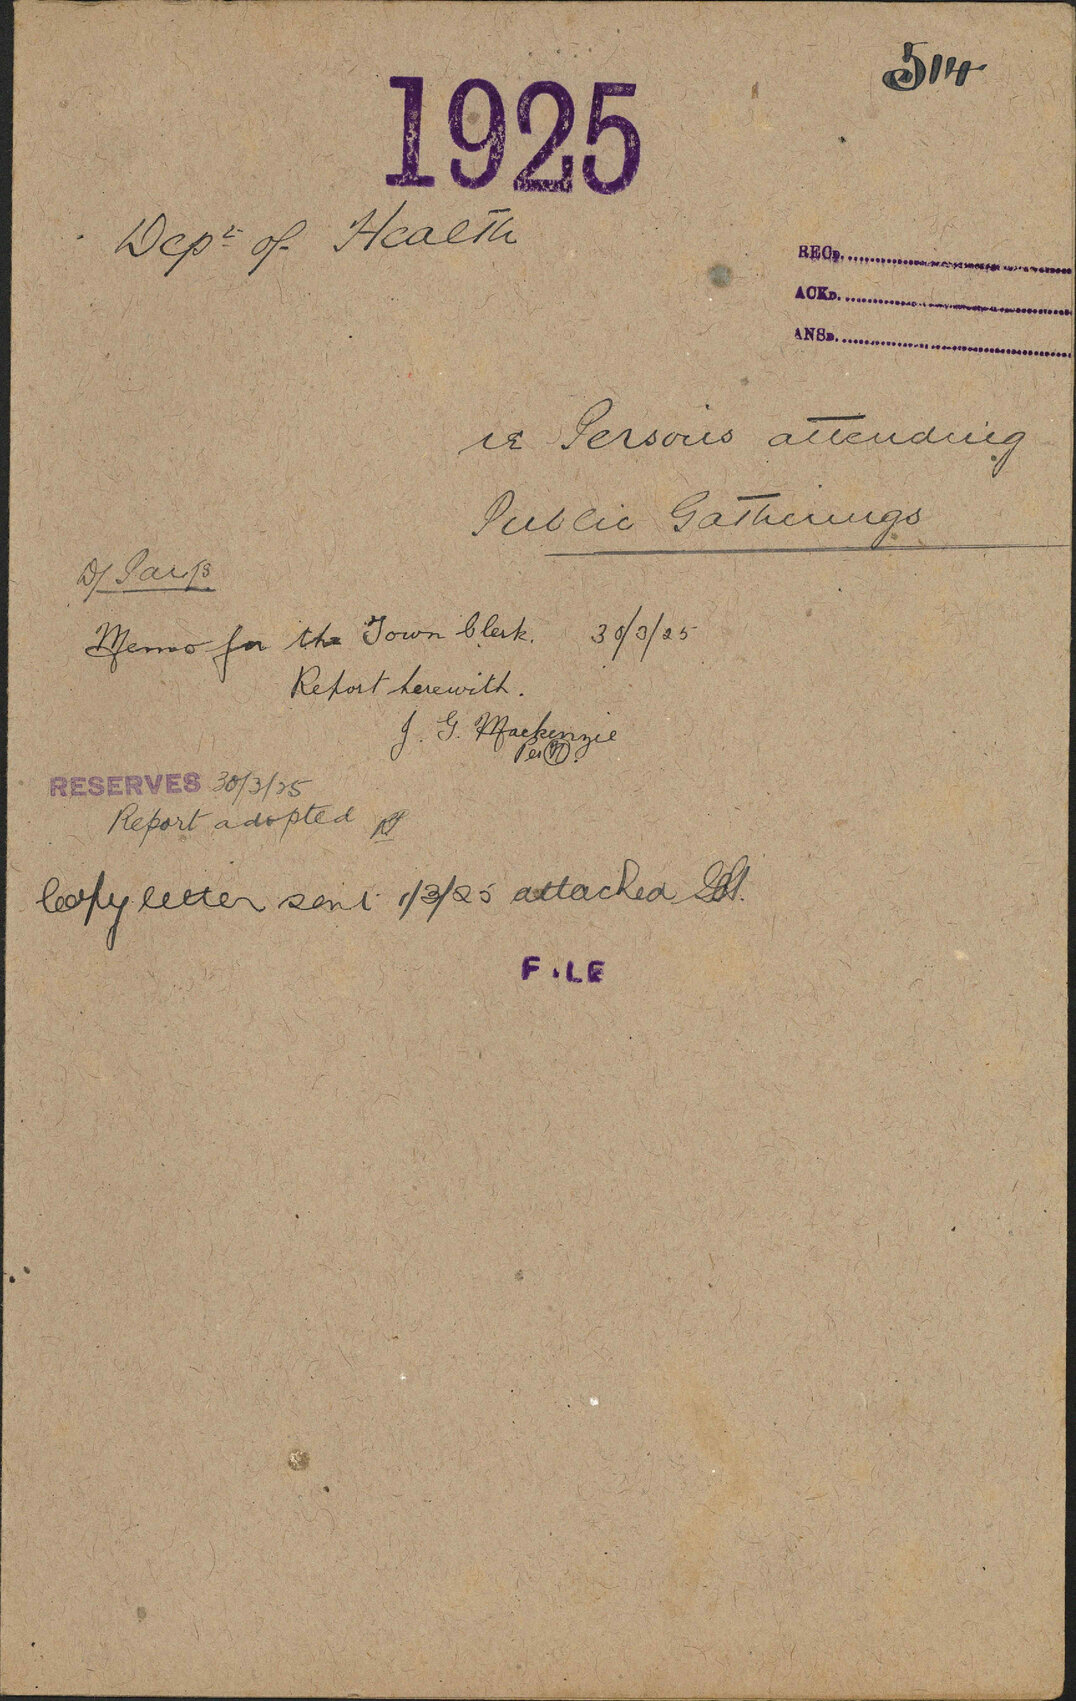 514
1925
Dept of Health
RECD.
ACKD.
ANSD.
re Persons attending
Public Gatherings
D/ Parks
Memo for the Town Clerk. 30/3/25
Report herewith.
J. G. Mackenzie
Per
RESERVES 30/3/25
Report adopted
Copy letter sent 1/3/25 attached
FILE